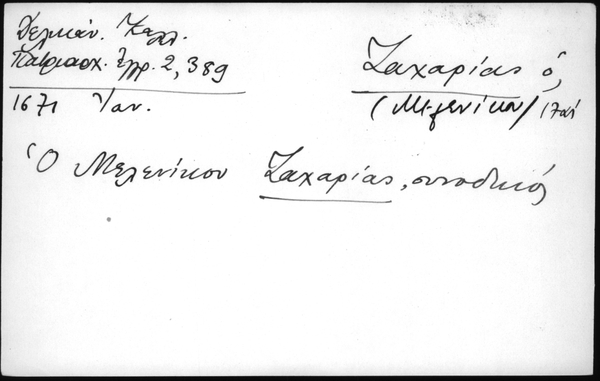 Δελικάν. Καλλ.
Πατριαρχ. Ἔγγρ. 2, 389
1671 Ἰαν.
Ζαχαρίας ὁ,
(Μελενίκου) 17ος
Ὁ Μελενίκου Ζαχαρίας, συνοδικός